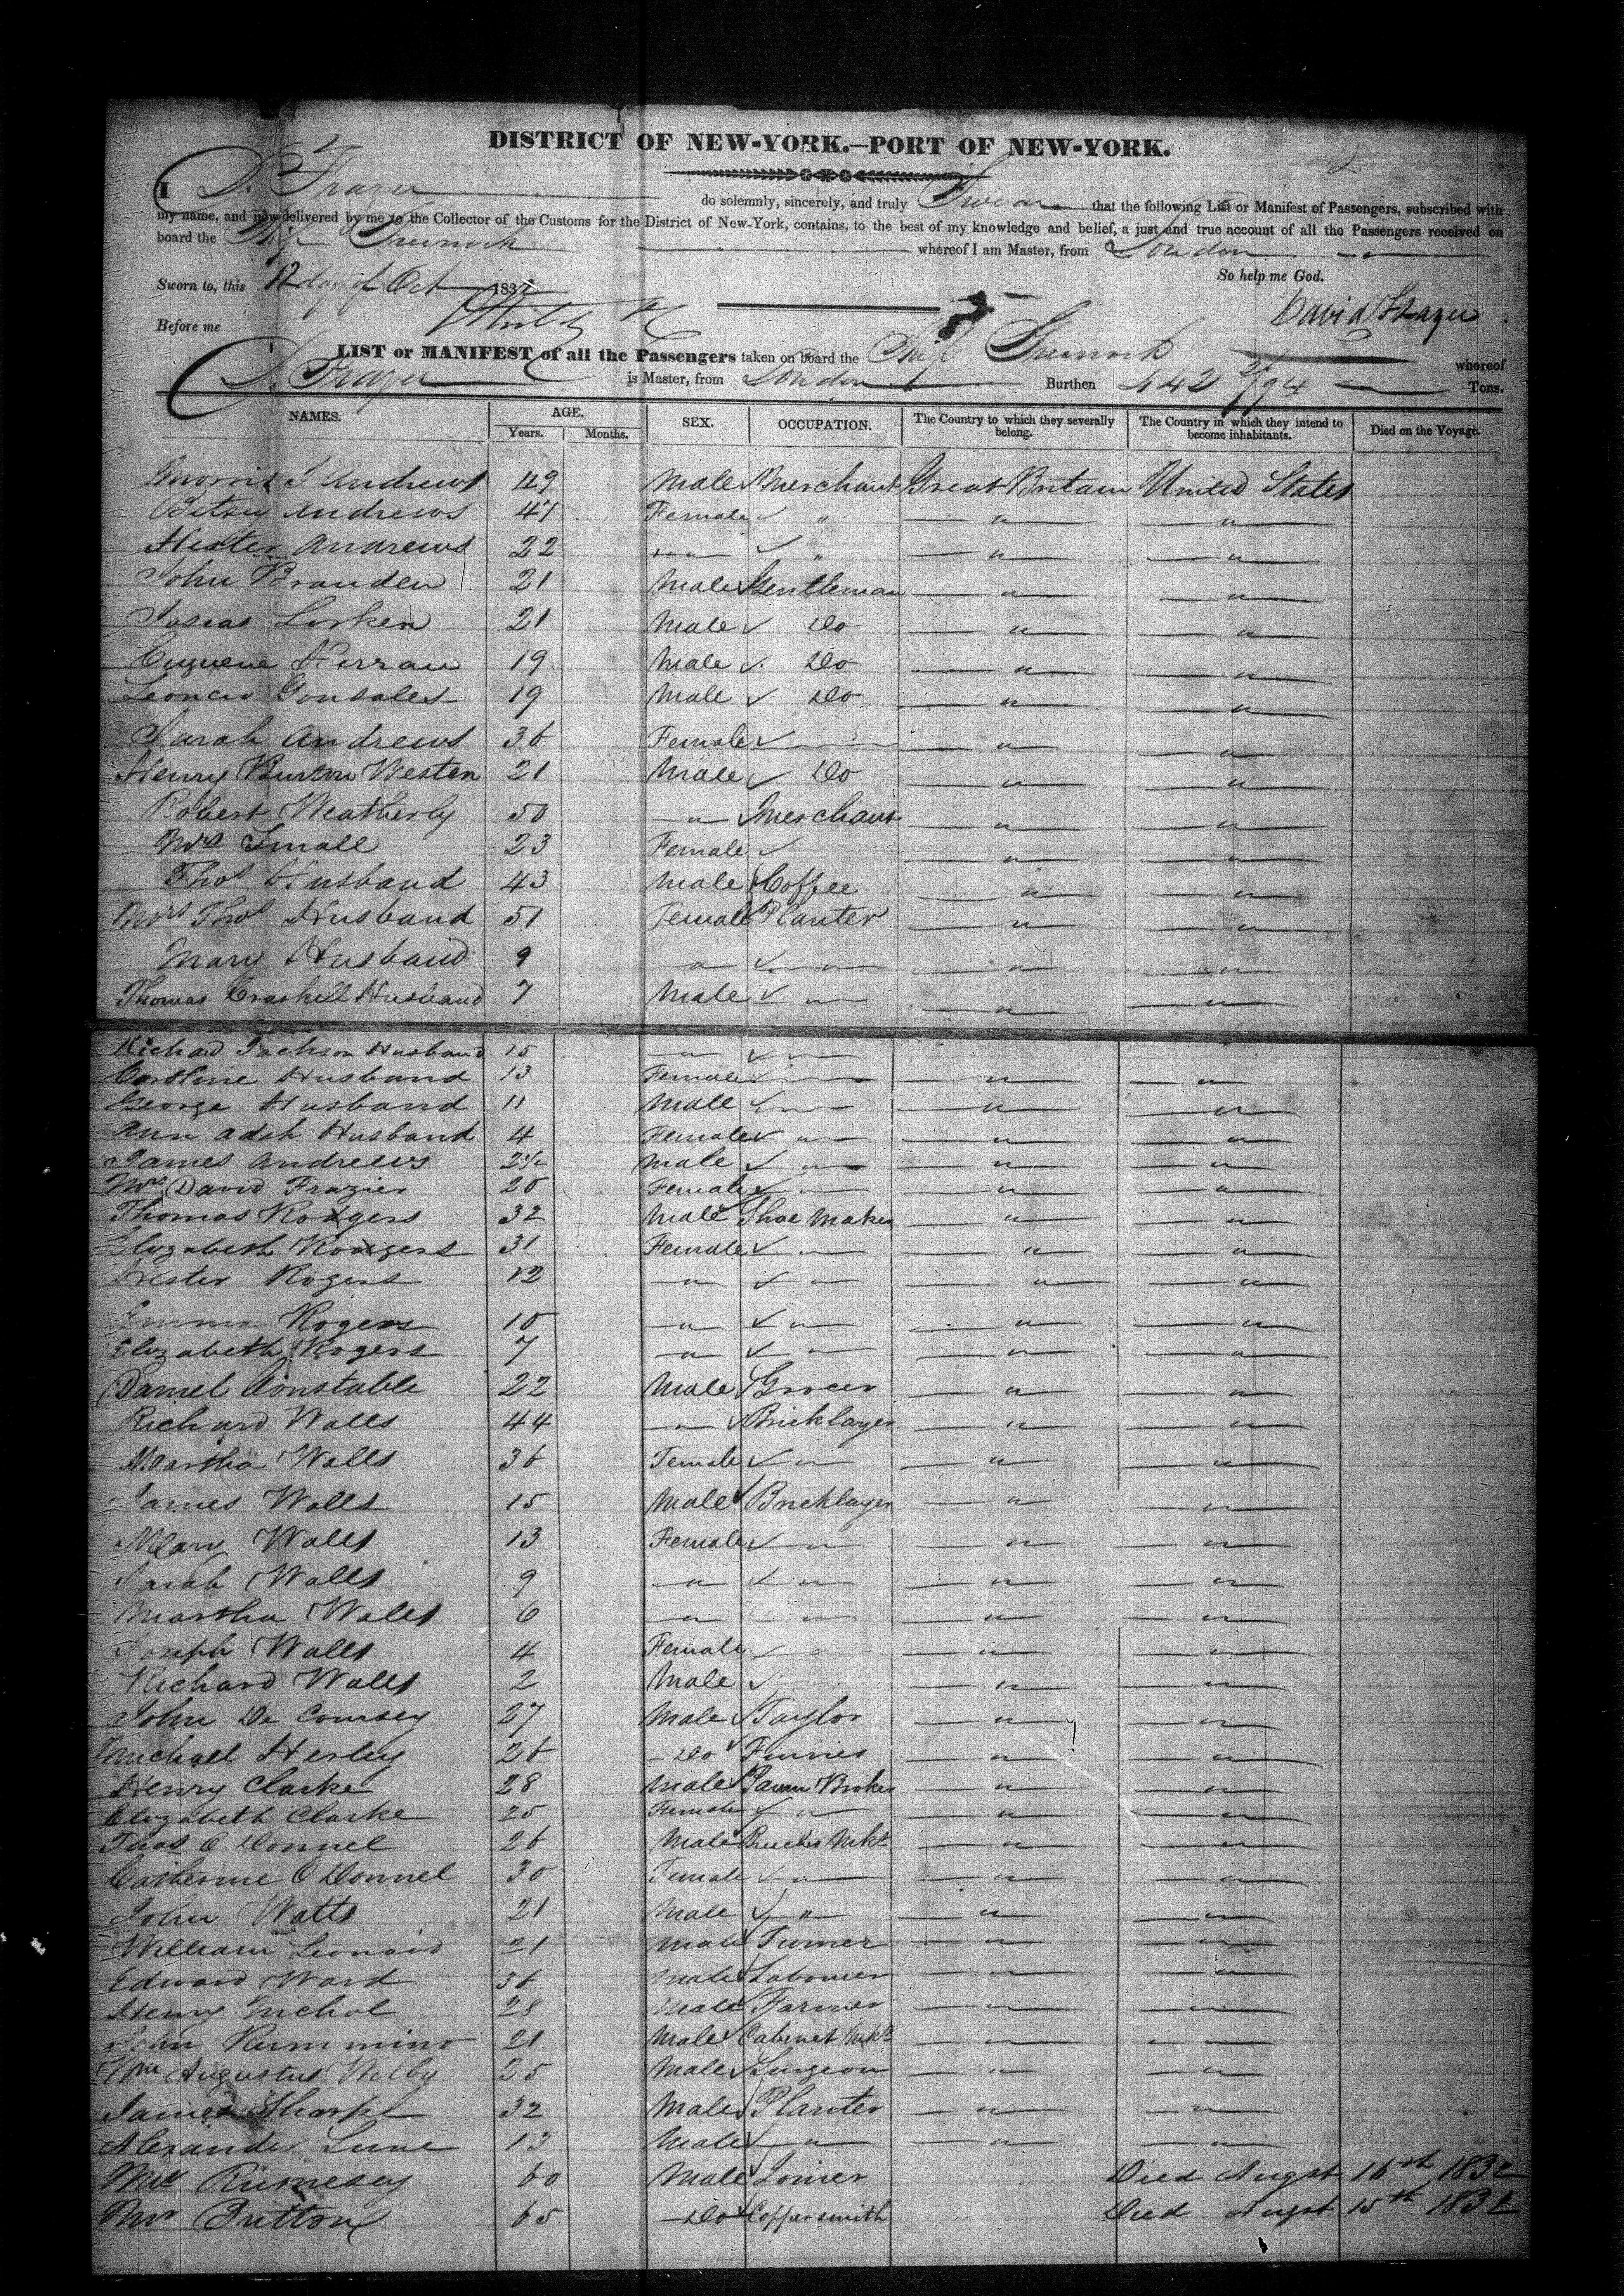 DISTRICT OF NEW-YORK.—PORT OF NEW-YORK.
I D. Frazer do solemnly, sincerely, and truly Swear that the following List or Manifest of Passengers, subscribed with
my name, and now delivered by me to the Collector of the Customs for the District of New-York, contains, to the best of my knowledge and belief, a just and true account of all the Passengers received on
board the Ship whereof I am Master, from London
So help me God.
Sworn to, this 12 day of Oct 1832
David Frazer
Before me
LIST or MANIFEST of all the Passengers taken on board the Ship whereof
D. Frazer is Master, from London Burthen 442 2/94 Tons.
NAMES. AGE. SEX. OCCUPATION. The Country to which they severally belong. The Country in which they intend to become inhabitants. Died on the Voyage.
Years. Months.
Morris J Andrews 49 Male Merchant Great Britain United States
Betsey Andrews 47 Female " " "
Hester Andrews 22 " " " "
John Branden 21 Male Gentleman " "
Josias Lorken 21 Male Do " "
Euguene Herran 19 Male Do " "
Leoncio Gonsales 19 Male Do " "
Sarah Andrews 36 Female " "
Henry Burton Westen 21 Male Do " "
Robert Weatherly 50 " Merchant " "
Mrs Small 23 Female " "
Thos Husband 43 Male Coffee " "
Mrs Thos Husband 51 Female Planter " "
Mary Husband 9 " " " "
Thomas Craskell Husband 7 Male " " "
Richard Jackson Husband 15 " "
Caroline Husband 13 Female " "
George Husband 11 Male " " "
Ann Husband 4 Female " " "
James Andrews 2½ Male " " "
Mrs David Frazier 20 Female " " "
Thomas Rodgers 32 Male Shoe Maker " "
Elizabeth Rodgers 31 Female " " "
Hester Rogers 12 " " " "
Emma Rogers 10 " " " "
Elizabeth Rogers 7 " " " "
Daniel Constable 22 Male Grocer " "
Richard Walls 44 " Bricklayer " "
Martha Walls 36 Female " " "
James Walls 15 Male Bricklayer " "
Mary Walls 13 Female " " "
Sarah Walls 9 " " " "
Martha Walls 6 " " " "
Joseph Walls 4 Female " " "
Richard Walls 2 Male " "
John De Coursey 27 Male Taylor " "
Michael Herley 26 Do " "
Henry Clarke 28 Male Pawn Broker " "
Elizabeth Clarke 25 Female " " "
Thos O Donnel 26 Male " "
Catherine O Donnel 30 Female " " "
John Watts 21 Male " " "
William Leonard 21 Male Turner " "
Edward Ward 36 Male Labourer " "
Henry Nichol 28 Male Farmer " "
John Rummino 21 Male Cabinet Mkr " "
Wm Augustus Welby 25 Male Surgeon " "
James Sharpe 32 Male Planter " "
Alexander Lune 13 Male " " "
Mr Rumesey 60 Male Joiner Died Augst 16th 1832
Mr Button 65 Do Coppersmith Died Augst 15th 1832